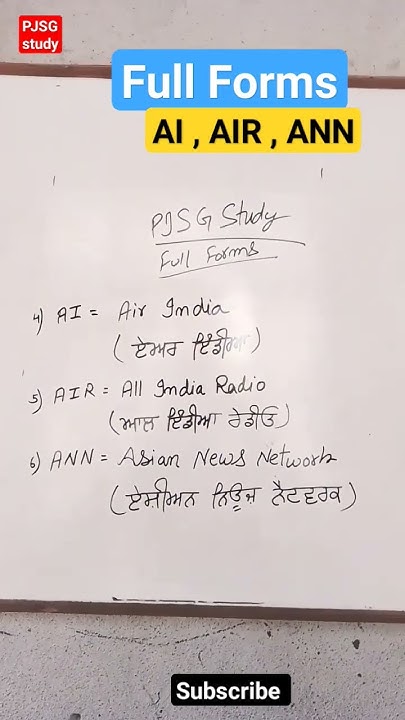 PJSG
study
Full Forms
AI , AIR , ANN
PJSG Study
Full Forms
4) AI = Air India
(ਏਅਰ ਇੰਡੀਆ)
5) AIR = All India Radio
(ਆਲ ਇੰਡੀਆ ਰੇਡੀਓ)
6) ANN = Asian News Network
(ਏਸ਼ੀਅਨ ਨਿਊਜ਼ ਨੈਟਵਰਕ)
Subscribe